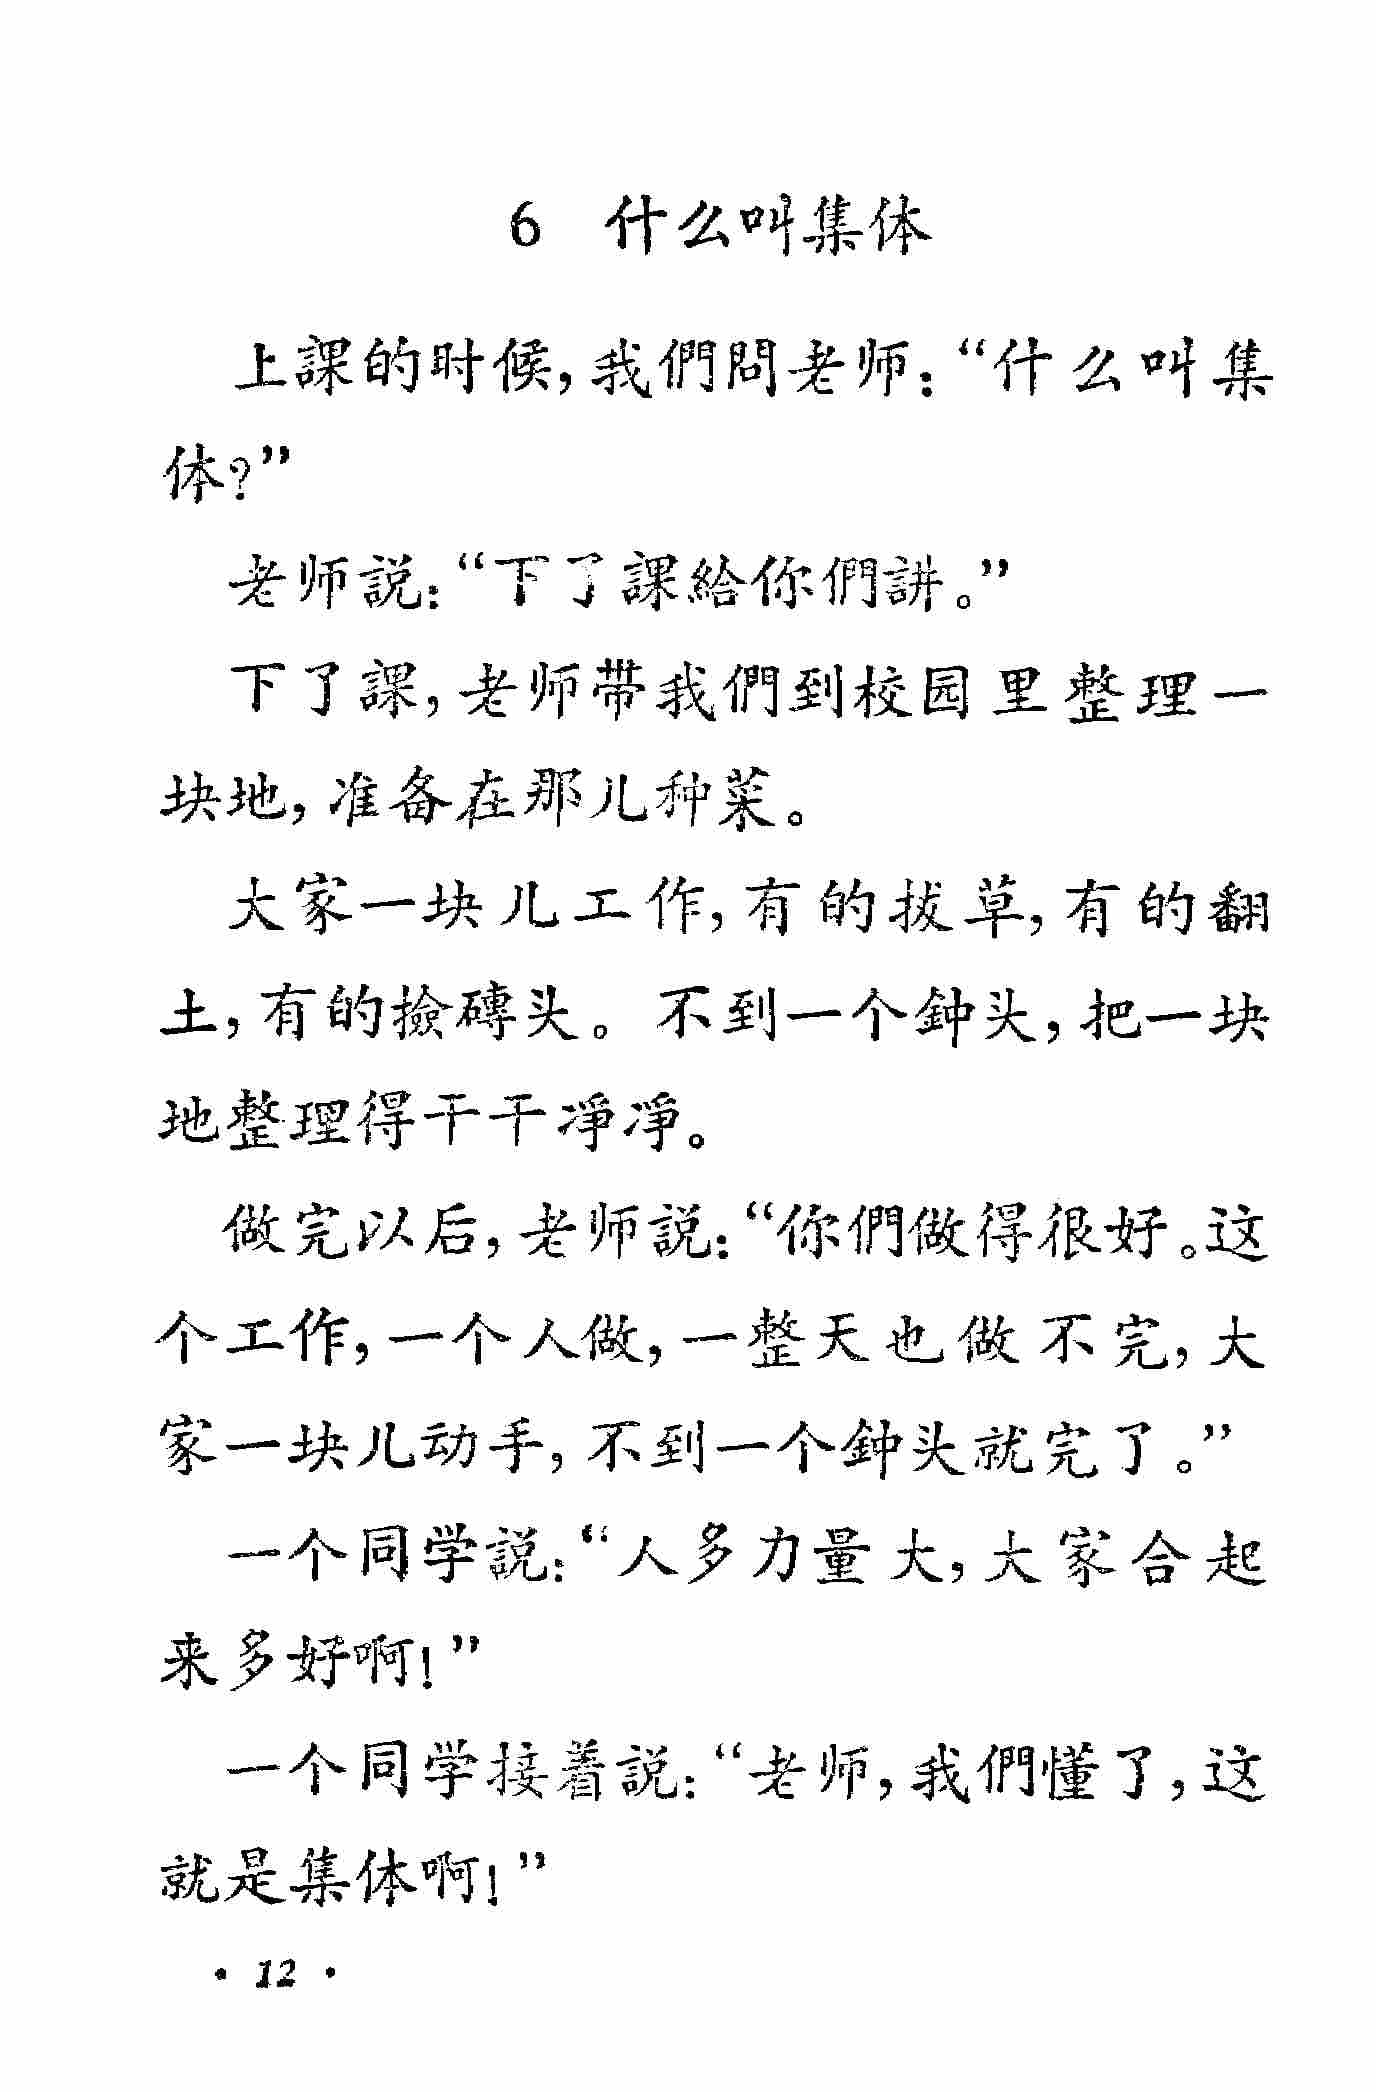 6 什么叫集体
上課的时候,我們問老师:“什么叫集
体?”
老师説:“下了課給你們講。”
下了課,老师带我們到校园里整理一
块地,准备在那儿种菜。
大家一块儿工作,有的拔草,有的翻
土,有的撿磚头。不到一个鈡头,把一块
地整理得干干凈凈。
做完以后,老师説:“你們做得很好。这
个工作,一个人做,一整天也做不完,大
家一块儿动手,不到一个鈡头就完了。”
一个同学説:“人多力量大,大家合起
来多好啊!”
一个同学接着説:“老师,我們懂了,这
就是集体啊!”
· 12 ·